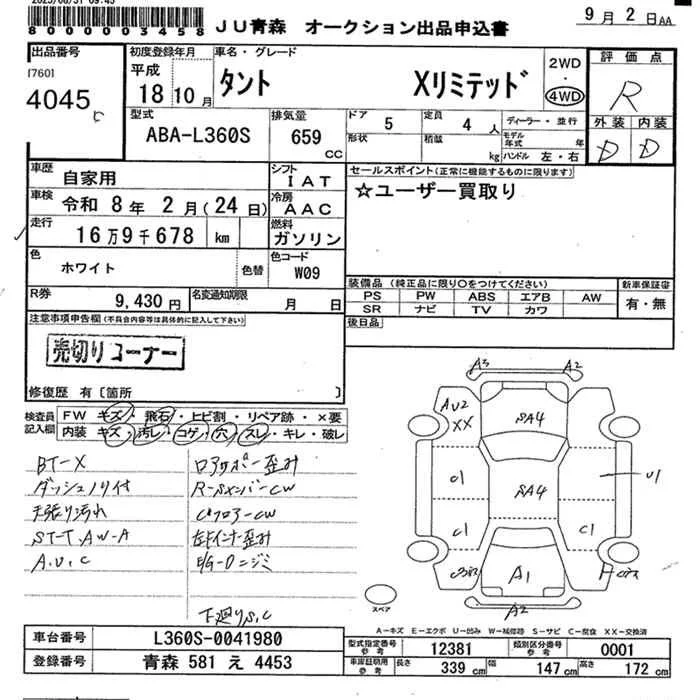 2025/08/31 09:43
8000003458
JU青森 オークション出品申込書
9月2日AA
出品番号
17601
4045
初度登録年月
平成
18 10月
車名・グレード
タント Xリミテッド
2WD
・
4WD
評価点
R
型式
ABA-L360S
排気量
659
CC
ドア
5
定員
4人
形状
積載
kg
ディーラー・並行
モデル年式 年
ハンドル 左・右
外装 内装
D D
車歴
自家用
シフト
IAT
車検
令和 8年 2月(24日)
冷房
AAC
走行
16万9千678 km
燃料
ガソリン
色
ホワイト
色替
色コード
W09
R券
9,430円
名変通知期限
月 日
セールスポイント(正常に機能するものに限ります)
☆ユーザー買取り
装備品(純正品に限り○をつけてください)
PS PW ABS エアB AW
SR ナビ TV カワ
新車保証書
有・無
後日品
注意事項申告欄(不具合内容等は具体的に記入して下さい)
売切りコーナー
修復歴 有〔箇所 〕
検査員記入欄
FW キズ・飛石・ヒビ割・リペア跡・×要
内装 キズ・汚レ・コゲ・穴・スレ・キレ・破レ
BT-X
ダッシュノリ付
天張り汚れ
ST-T.AW-A
A.U.C
ロアサポー歪み
R-SメンバーCW
CピラーCW
左Fインナー歪み
E/G-Oニジミ
下廻りS,C
A3
A2
AU2
XX
SA4
C1
SA4
U1
C1
C1
A1
A2
スペア
A-キズ E-エクボ U-凹み W-補修跡 S-サビ C-腐食 XX-交換済
車台番号
L360S-0041980
登録番号
青森 581 え 4453
型式指定番号 参考
12381
類別区分番号 参考
0001
車庫証明用 参考
長さ 339 cm
幅 147 cm
高さ 172 cm